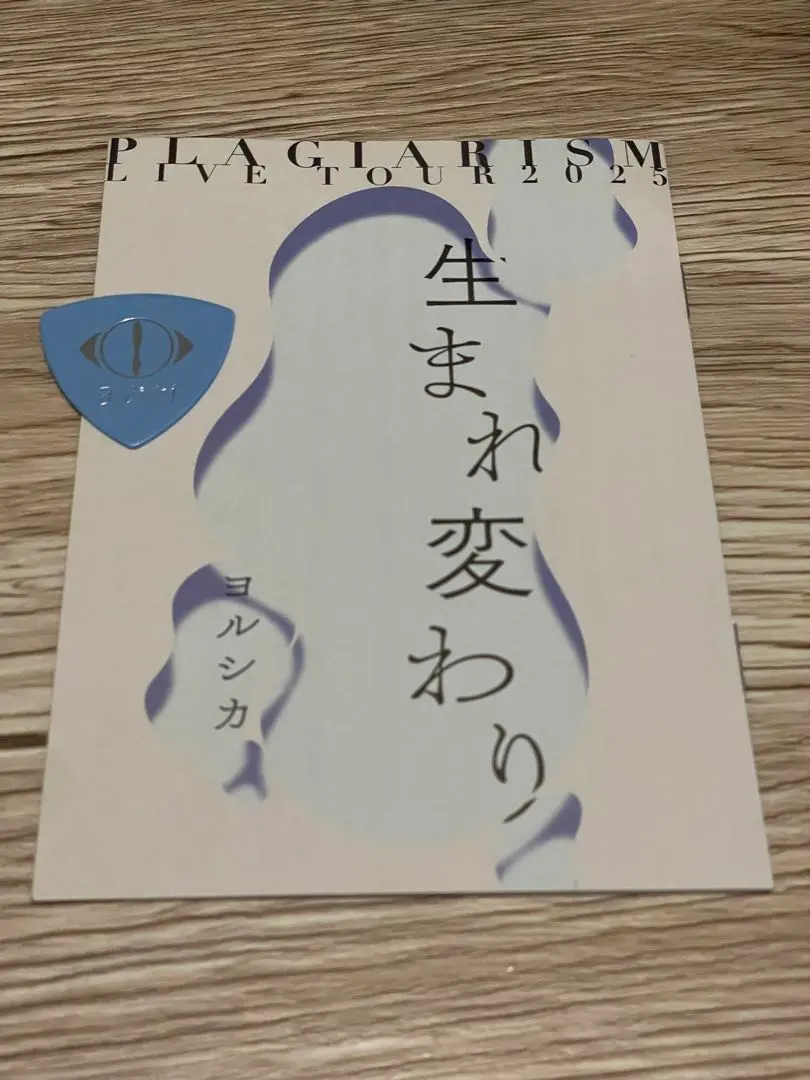 PLAGIARISM
LIVE TOUR 2025
生まれ変わり
ヨルシカ